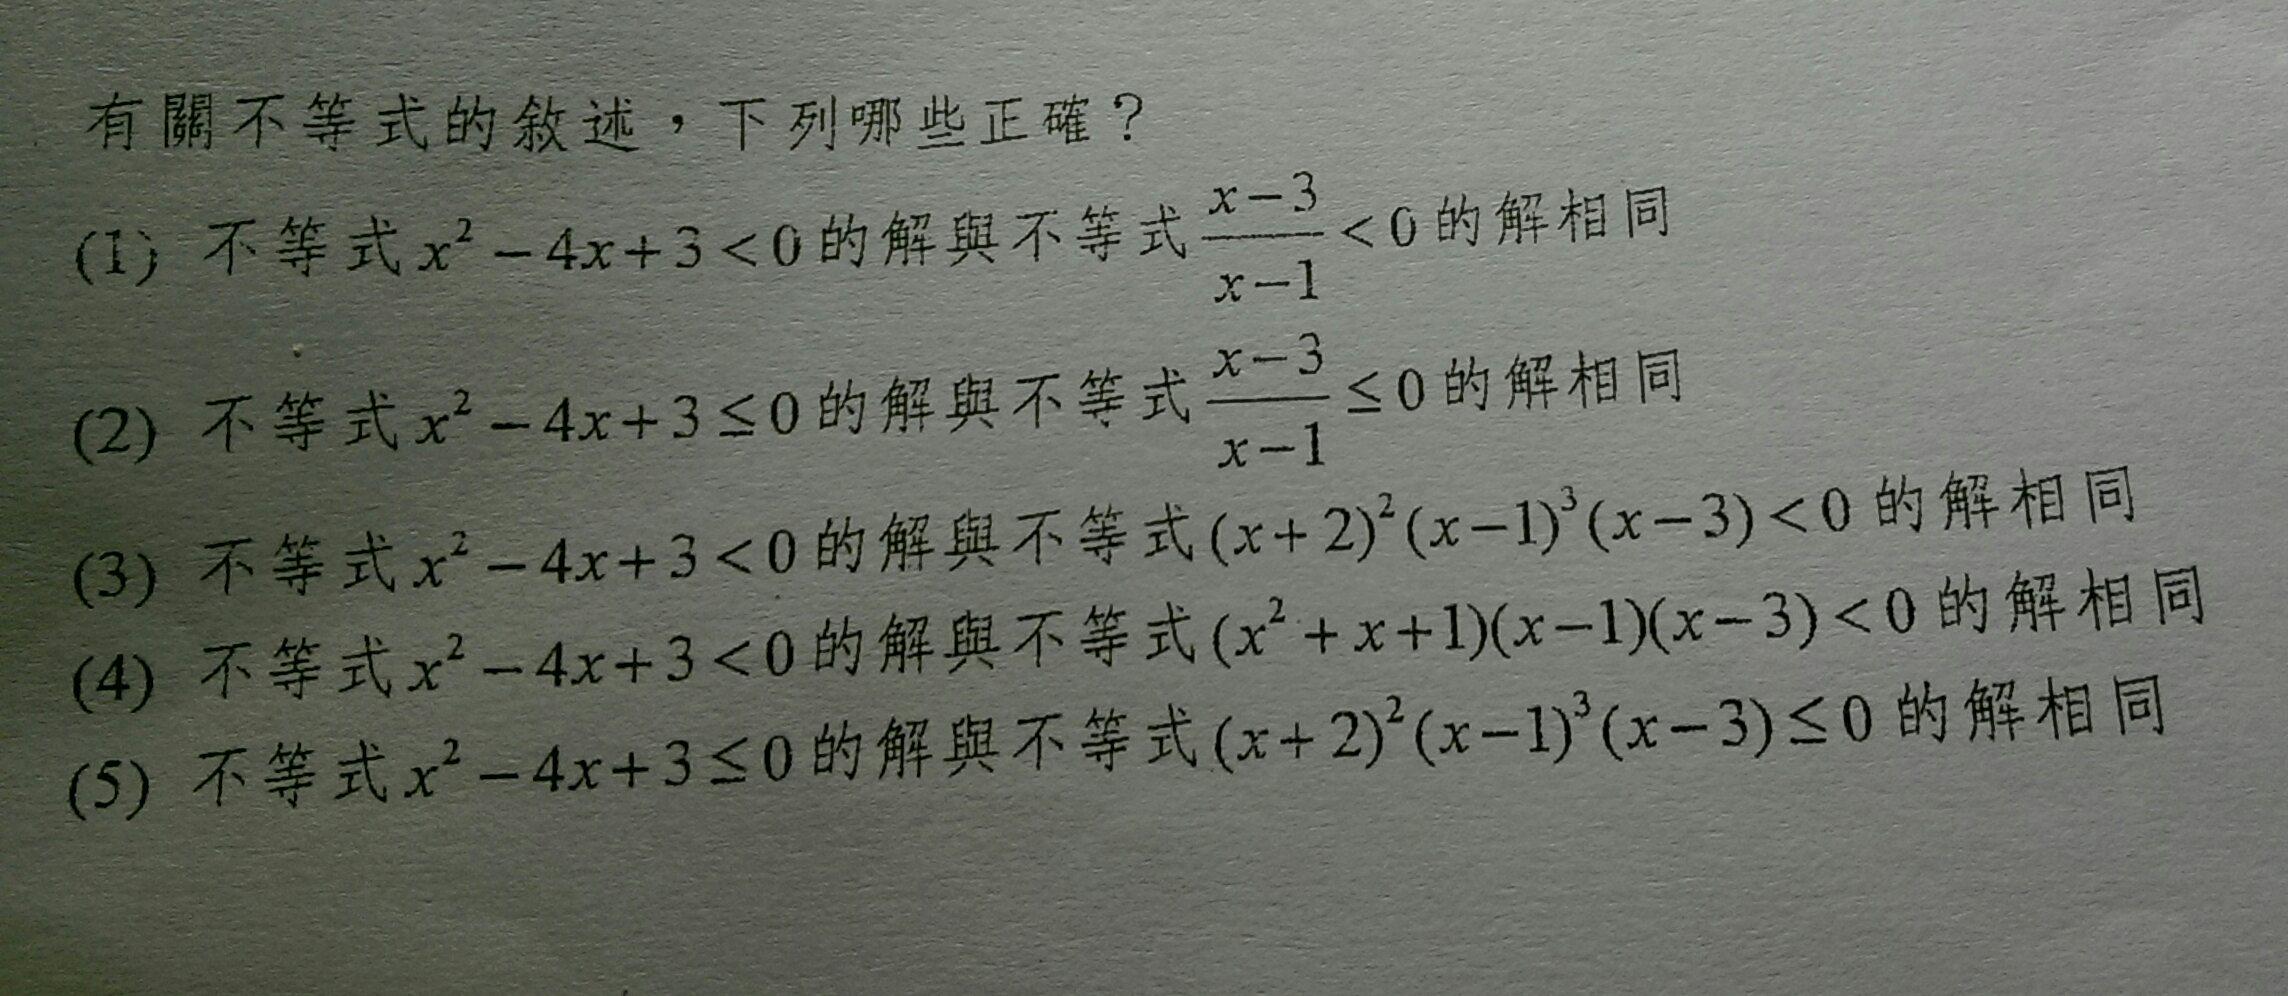 有關不等式的敘述，下列哪些正確？
(1) 不等式 x² − 4x + 3 < 0 的解與不等式 (x − 3)/(x − 1) < 0 的解相同
(2) 不等式 x² − 4x + 3 ≤ 0 的解與不等式 (x − 3)/(x − 1) ≤ 0 的解相同
(3) 不等式 x² − 4x + 3 < 0 的解與不等式 (x + 2)²(x − 1)³(x − 3) < 0 的解相同
(4) 不等式 x² − 4x + 3 < 0 的解與不等式 (x² + x + 1)(x − 1)(x − 3) < 0 的解相同
(5) 不等式 x² − 4x + 3 ≤ 0 的解與不等式 (x + 2)²(x − 1)³(x − 3) ≤ 0 的解相同